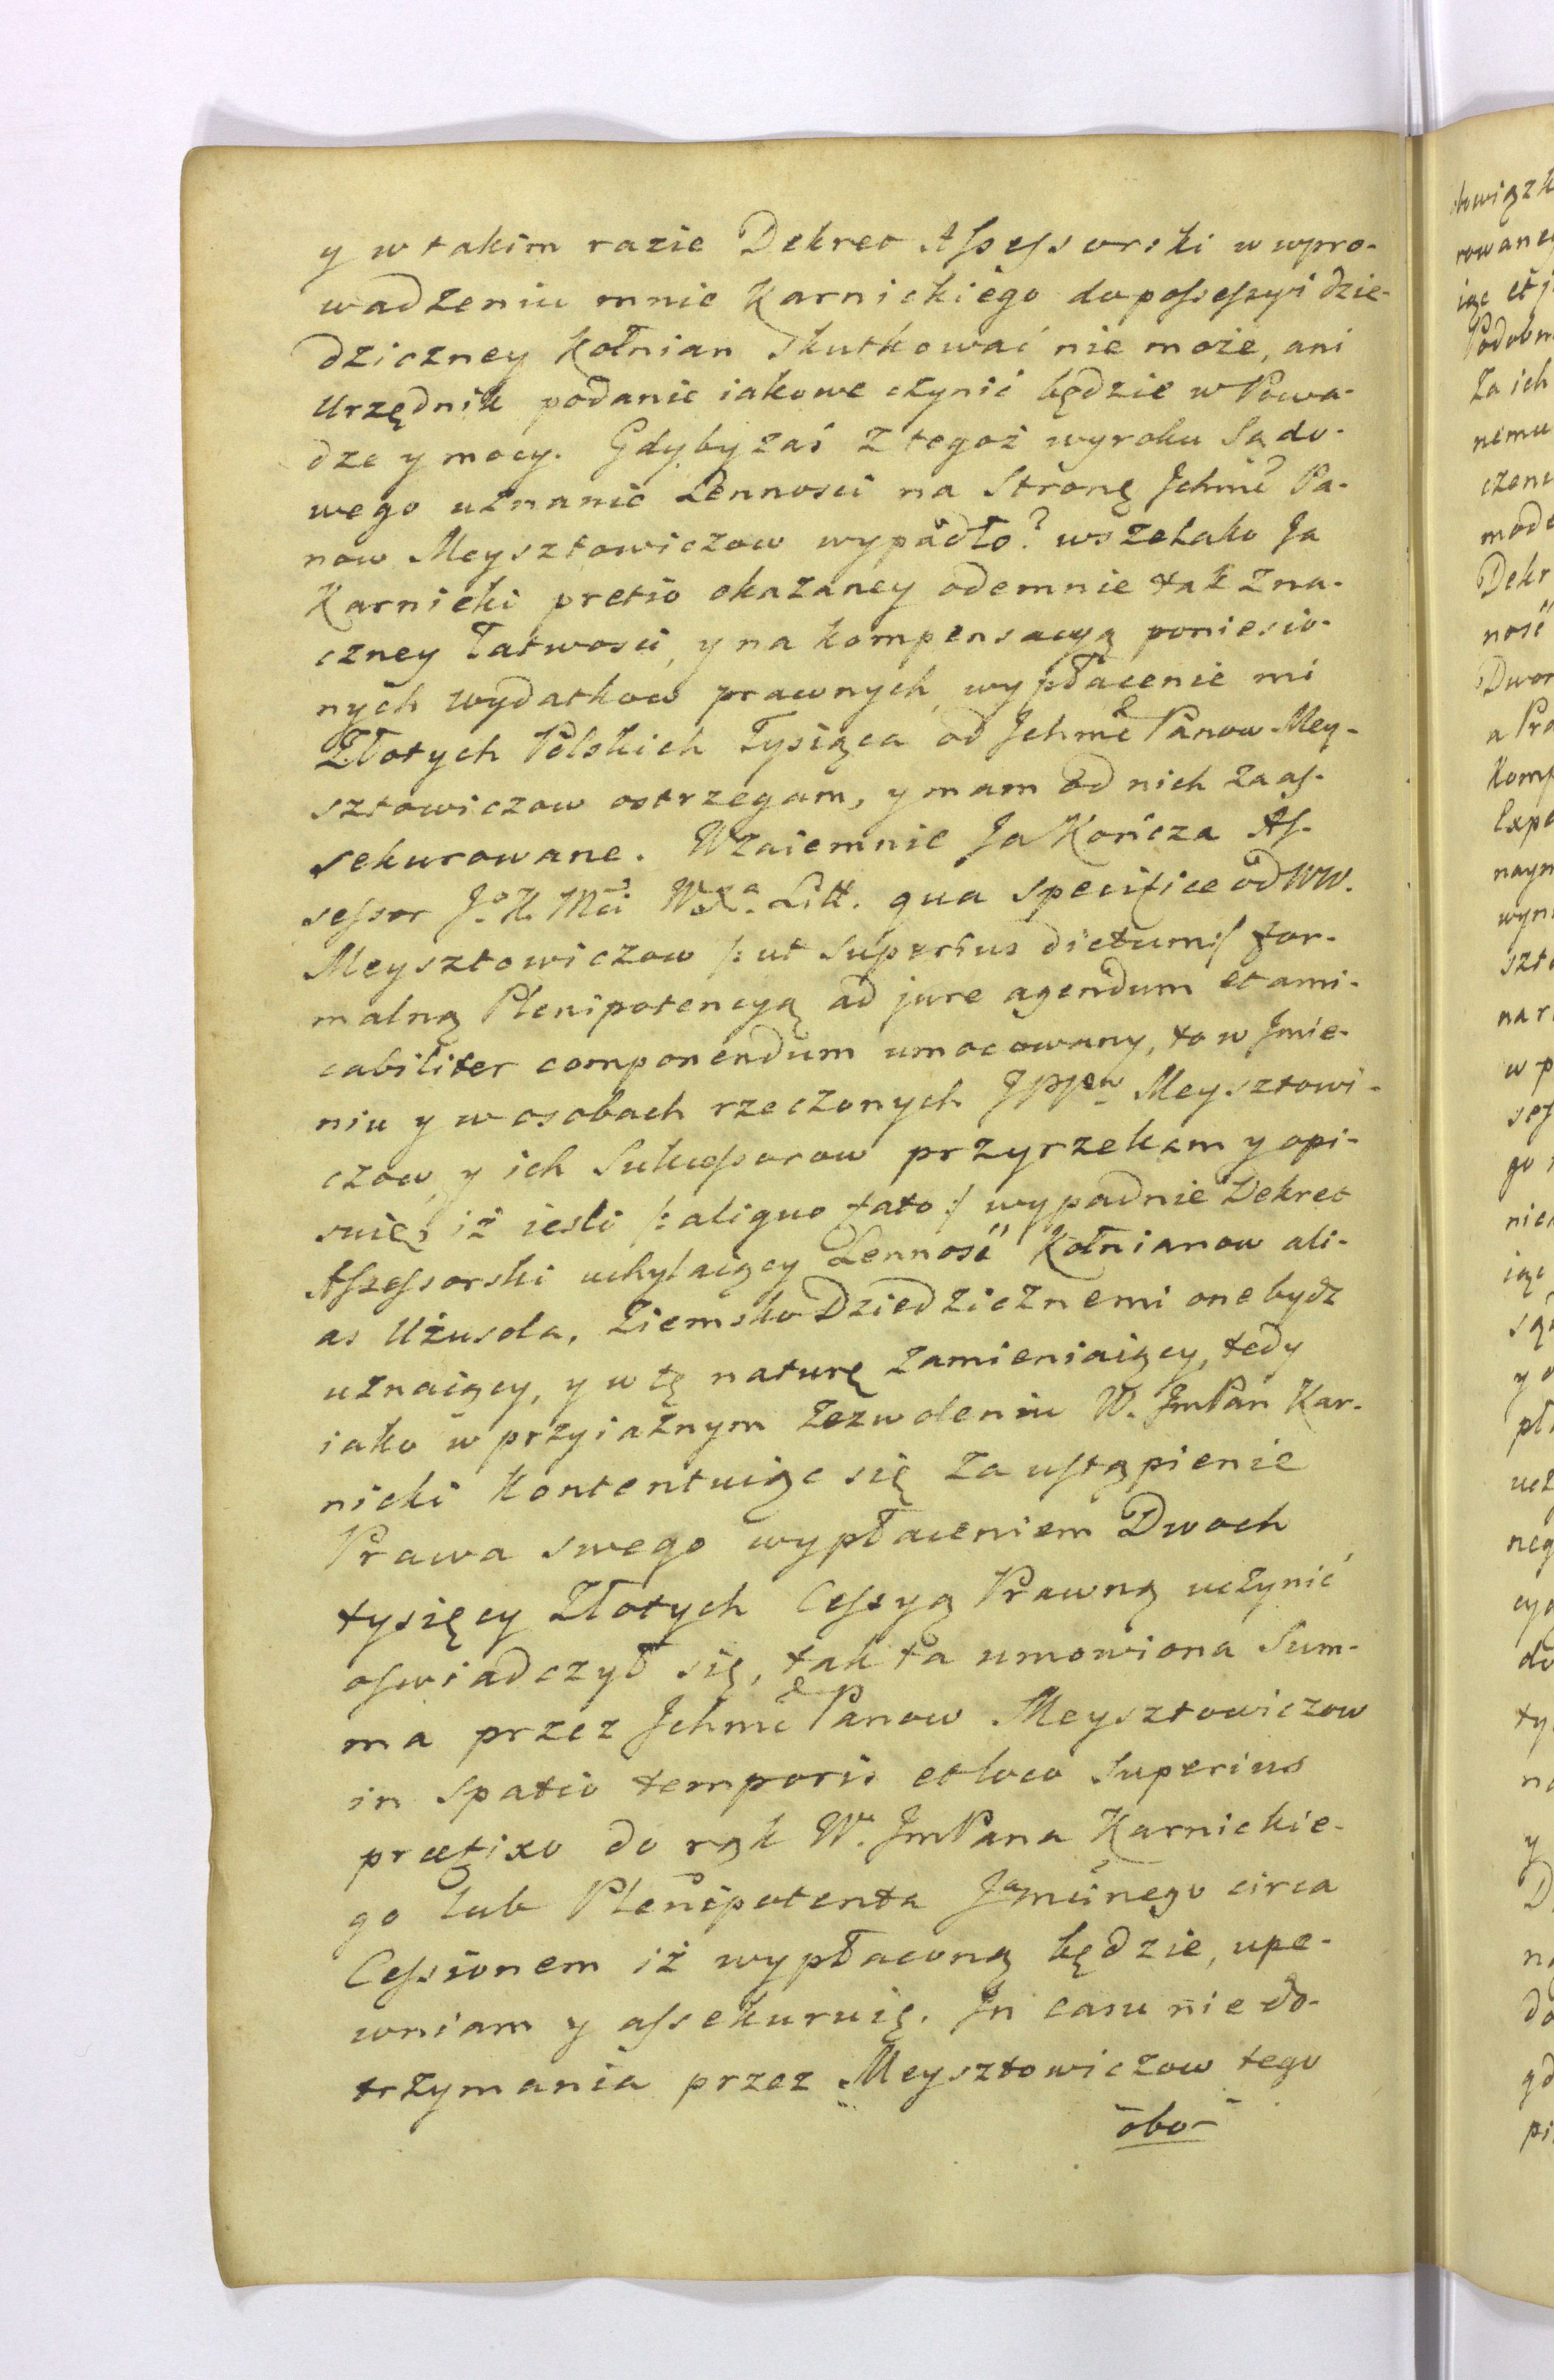 y w takim razie Dekret Assessorski w wpro-
wadzeniu mnie Karnickiego do possessyi dzie-
dziczney Kołnian Skutkować nie może, ani
Urzędnik podanie iakowe czynić będzie w Powa-
dze y mocy. Gdyby zaś z tegoż wyroku Sądo-
wego uznanie Lennosci na Stronę Ichmć Pa-
now Meysztowiczow wypadło? wszelako Ja
Karnicki pretio okazaney odemnie tak zna-
czney łatwosci, y na kompensacyą poniesio-
nych wydatkow prawnych, wypłacenie mi
Złotych Polskich Tysiąca od Ichmć Panow Mey-
sztowiczow ostrzegam, y mam od nich zaas-
sekurowane. Wzaiemnie Ja Kończa As-
sessor J. K. Mci W. X. Litt. qua specifice od WW.
Meysztowiczow /: ut superius dictum :/ for-
malną Plenipotencyą ad jure agendum et ami-
cabiliter componendum umocowany, to w Jmie-
niu y w osobach rzeczonych JPPow Meysztowi-
czow, y ich Sukcessorow przyrzekam y opi-
suię, iż iesli /: aliquo fato :/ wypadnie Dekret
Assessorski uchylaiący Lennosć Kołnianow ali-
as Użusola, Ziemsko Dziedzicznemi one bydz
uznaiący, y w tę naturę zamieniaiący, tedy
iako w przyiaznym zezwoleniu W. JmPan Kar-
nicki kontentuiąc się za ustąpienie
Prawa swego wypłaceniem Dwoch
tysięcy Złotych Cessyą Prawną uczynić
oswiadczył się, tak ta umowiona Sum-
ma przez Ichmć Panow Meysztowiczow
in spatio temporis et loco superius
præfixo do rąk W. JmPana Karnickie-
go lub Plenipotenta Jmcinego circa
Cessionem iż wypłaconą będzie, upe-
wniam y assekuruię. In casu niedo-
trzymania przez Meysztowiczow tego
obo-